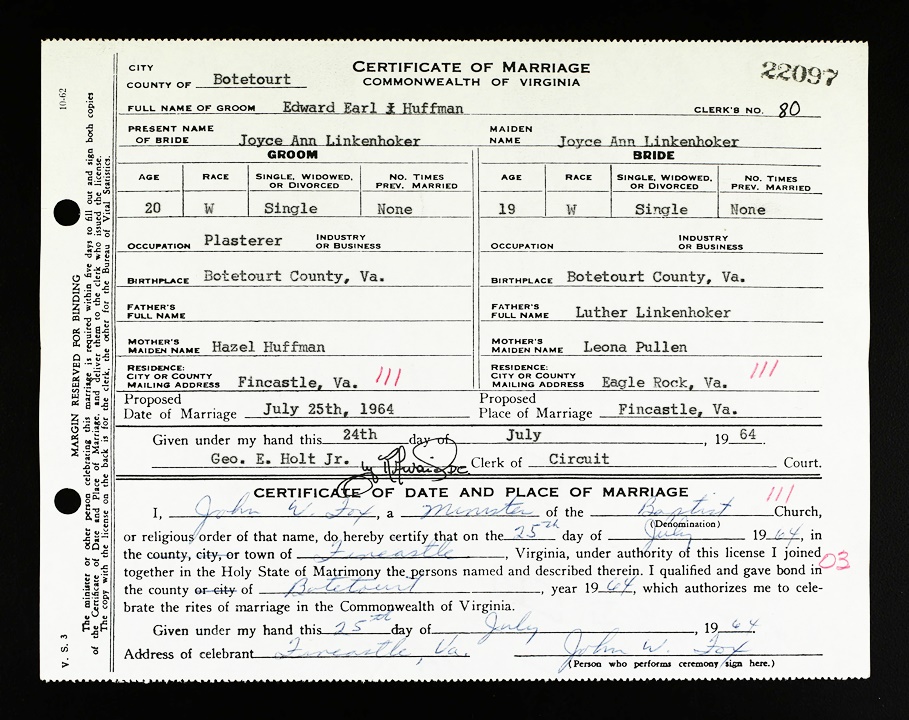 CITY
COUNTY OF Botetourt
CERTIFICATE OF MARRIAGE
COMMONWEALTH OF VIRGINIA
22097
FULL NAME OF GROOM Edward Earl Huffman CLERK'S NO. 80
PRESENT NAME OF BRIDE Joyce Ann Linkenhoker MAIDEN NAME Joyce Ann Linkenhoker
GROOM BRIDE
AGE RACE SINGLE, WIDOWED, OR DIVORCED NO. TIMES PREV. MARRIED AGE RACE SINGLE, WIDOWED, OR DIVORCED NO. TIMES PREV. MARRIED
20 W Single None 19 W Single None
OCCUPATION Plasterer INDUSTRY OR BUSINESS OCCUPATION INDUSTRY OR BUSINESS
BIRTHPLACE Botetourt County, Va. BIRTHPLACE Botetourt County, Va.
FATHER'S FULL NAME FATHER'S FULL NAME Luther Linkenhoker
MOTHER'S MAIDEN NAME Hazel Huffman MOTHER'S MAIDEN NAME Leona Pullen
RESIDENCE: CITY OR COUNTY MAILING ADDRESS Fincastle, Va. 111 RESIDENCE: CITY OR COUNTY MAILING ADDRESS Eagle Rock, Va. 111
Proposed Date of Marriage July 25th, 1964 Proposed Place of Marriage Fincastle, Va.
Given under my hand this 24th day of July, 1964.
Geo. E. Holt Jr. by D.C. Clerk of Circuit Court.
CERTIFICATE OF DATE AND PLACE OF MARRIAGE 111
I, John W. Fox, a Minister of the Baptist Church,
(Denomination)
or religious order of that name, do hereby certify that on the 25th day of July 1964, in
the county, city, or town of Fincastle, Virginia, under authority of this license I joined
together in the Holy State of Matrimony the persons named and described therein. I qualified and gave bond in 03
the county or city of Botetourt, year 1964, which authorizes me to cele-
brate the rites of marriage in the Commonwealth of Virginia.
Given under my hand this 25th day of July, 1964.
Address of celebrant Fincastle, Va. John W. Fox
(Person who performs ceremony sign here.)
10-62
MARGIN RESERVED FOR BINDING
The minister or other person celebrating this marriage is required within five days to fill out and sign both copies
of the Certificate of Date and Place of Marriage, and deliver them to the clerk who issued the license.
The copy with the license on the back is for the clerk, the other for the Bureau of Vital Statistics.
V. S. 3